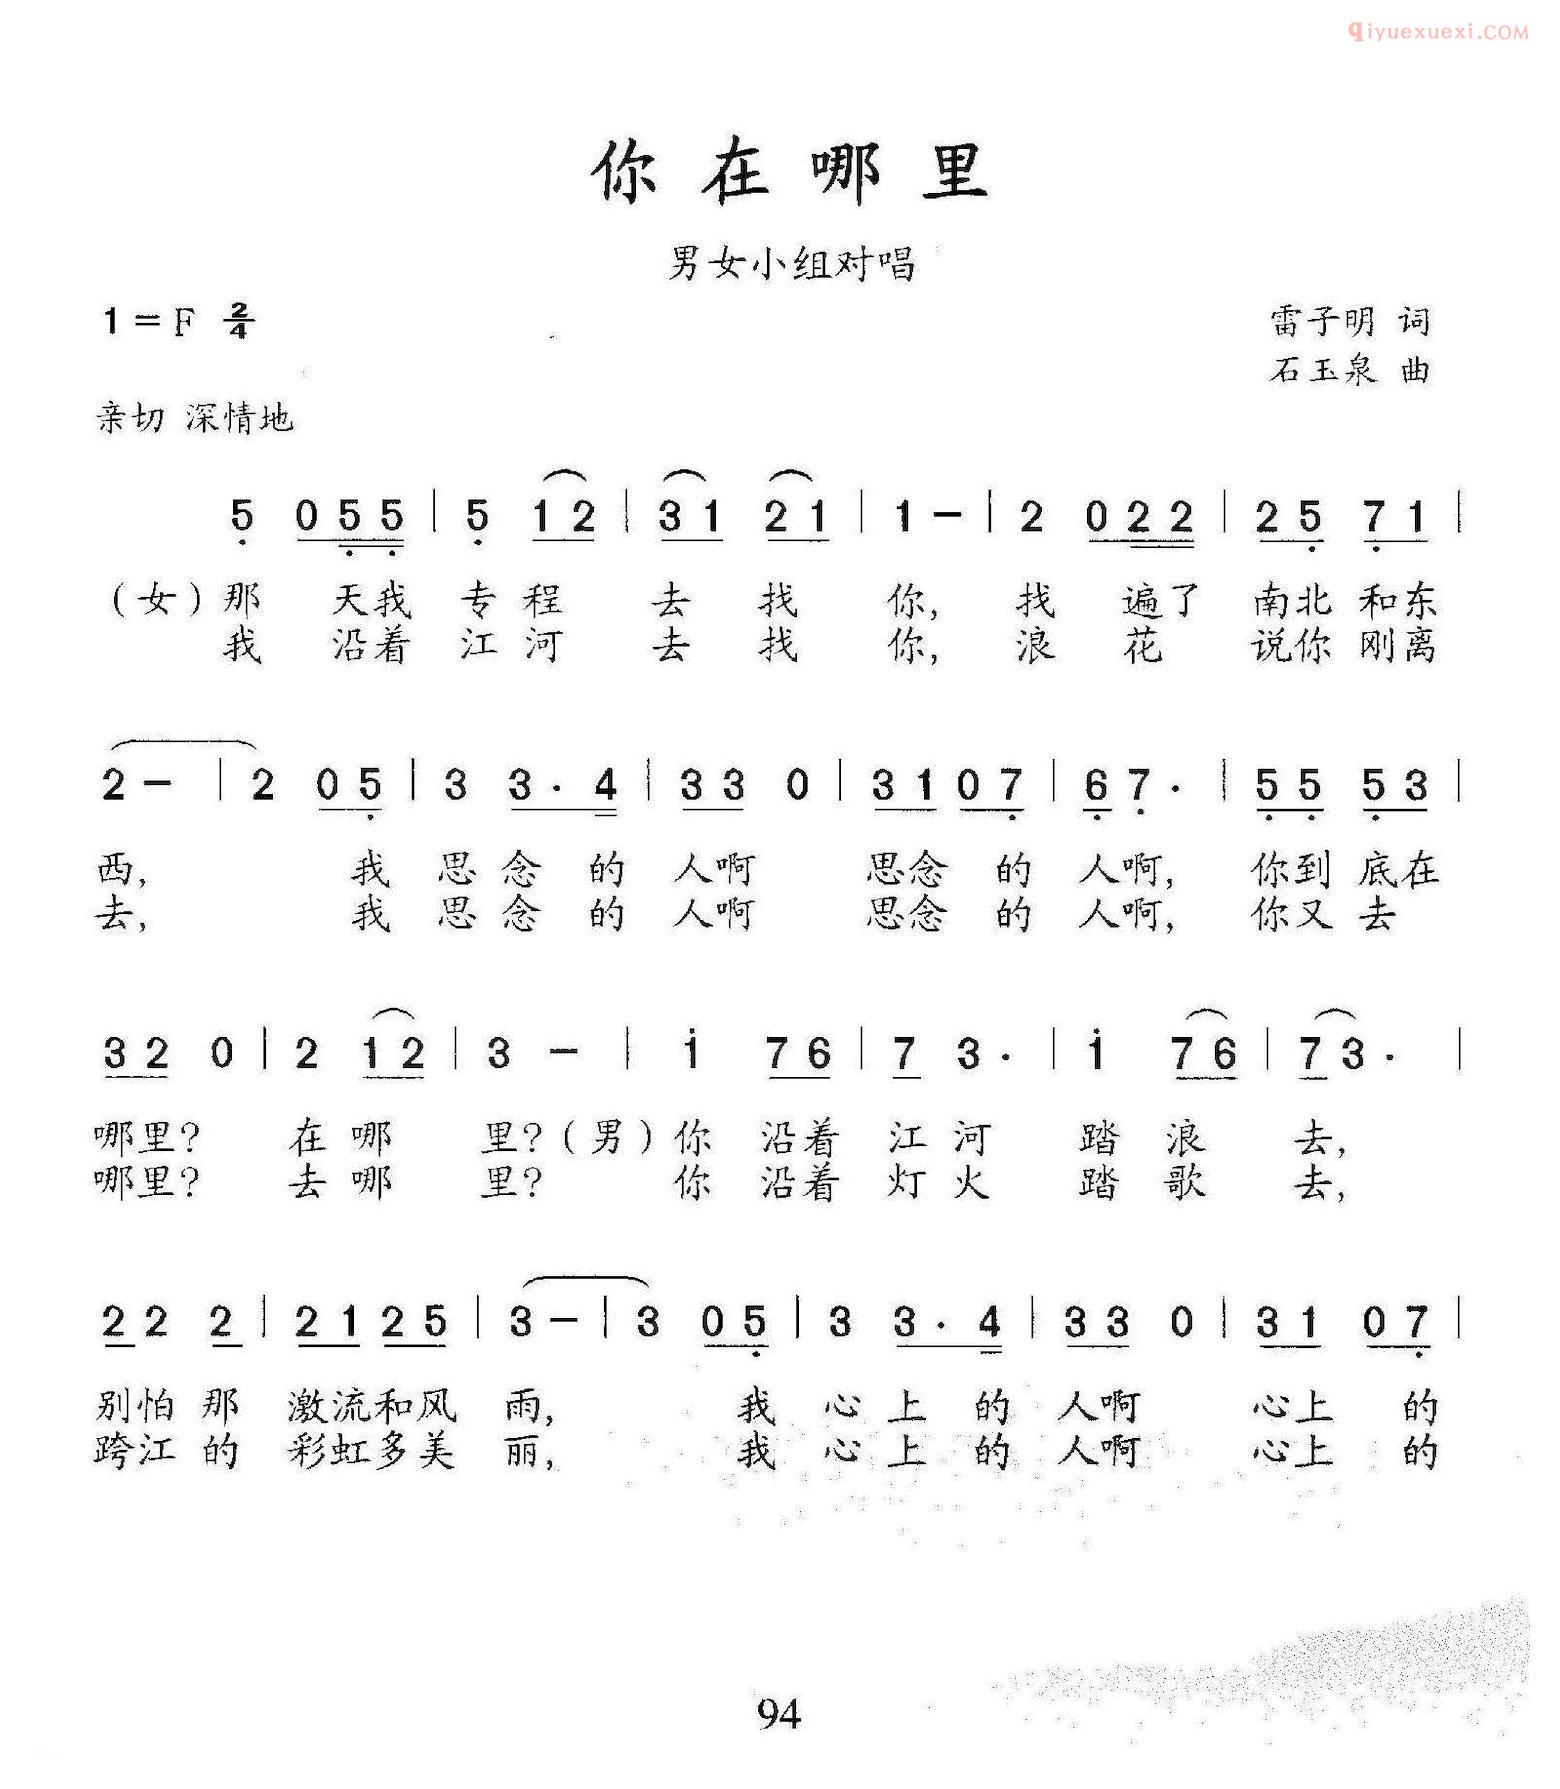 qiyuexuexi.COM
你在哪里
男女小组对唱
1=F 2/4
雷子明 词
石玉泉 曲
亲切 深情地
5 0 5 5 | 5 1 2 | 3 1 2 1 | 1 - | 2 0 2 2 | 2 5 7 1 |
（女）那 天我 专程 去 找 你, 找 遍了 南北 和东
我 沿着 江河 去 找 你, 浪 花 说你 刚离
2 - | 2 0 5 | 3 3 · 4 | 3 3 0 | 3 1 0 7 | 6 7 · | 5 5 5 3 |
西, 我 思念 的 人啊 思念 的 人啊, 你到 底在
去, 我 思念 的 人啊 思念 的 人啊, 你又 去
3 2 0 | 2 1 2 | 3 - | 1 7 6 | 7 3 · | 1 7 6 | 7 3 · |
哪里? 在哪 里?（男）你 沿着 江河 踏浪 去,
哪里? 去哪 里? 你 沿着 灯火 踏歌 去,
2 2 2 | 2 1 2 5 | 3 - | 3 0 5 | 3 3 · 4 | 3 3 0 | 3 1 0 7 |
别怕 那 激流和风 雨, 我 心上 的 人啊 心上 的
跨江 的 彩虹多美 丽, 我 心上 的 人啊 心上 的
94